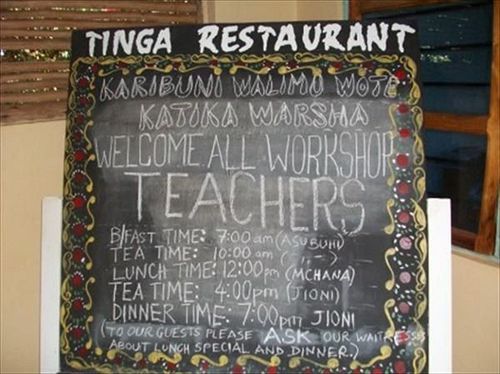 TINGA RESTAURANT
KARIBUNI WALIMU WOTE
KATIKA WARSHA
WELCOME ALL WORKSHOP
TEACHERS
B/FAST TIME: 7:00 am (ASUBUHI)
TEA TIME: 10:00 am ( -"- )
LUNCH TIME: 12:00 pm (MCHANA)
TEA TIME: 4:00 pm (JIONI)
DINNER TIME: 7:00 pm JIONI
(TO OUR GUESTS PLEASE ASK OUR WAITRESSES
ABOUT LUNCH SPECIAL AND DINNER.)